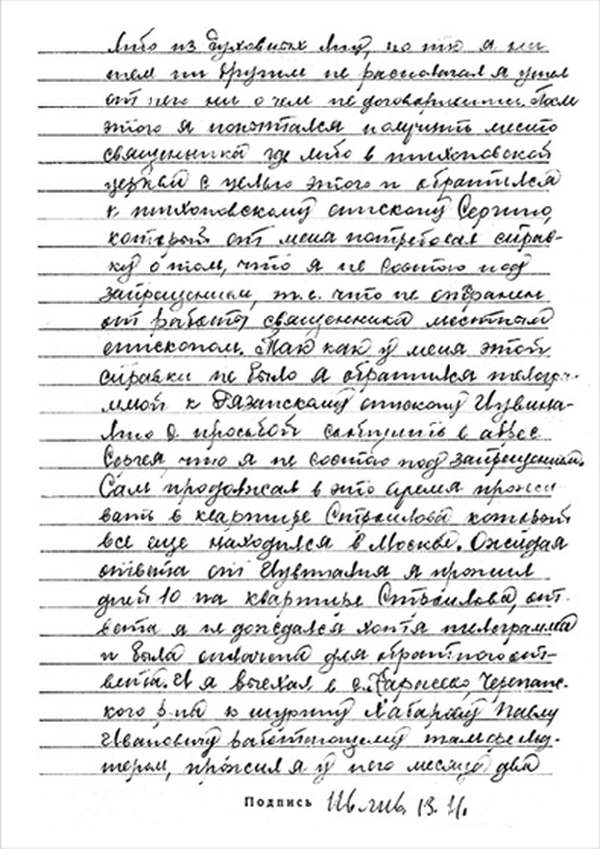 либо из духовных лиц, но т.к. я ни
тем ни другим не располагал я ушел
от него ни о чем не договорившись. После
этого я попытался получить место
священника где либо в тихоновской
церкви с целью этого и обратился
к тихоновскому епископу Сергию,
который от меня потребовал справ-
ку о том, что я не состою под
запрещением, т.е. что не отстранен
от работы священника местным
епископом. Так как у меня этой
справки не было я обратился телегра-
ммой к Казанскому епископу Иувина-
лию с просьбой сообщить в адрес
Сергея, что я не состою под запрещением.
Сам продолжал в это время прожи-
вать в квартире Стр лова который
все еще находился в Москве. Ожидая
ответа от Иувиналия я прожил
дней 10 на квартире Стр лова, от-
вета я не дождался хотя телеграмма
и была оплачена для обратного от-
вета. И я выехал в с. Череп
кого р-на к шурину Хабарову Павлу
Ивановичу работающему там
тером, прожил я у него месяца два
Подпись